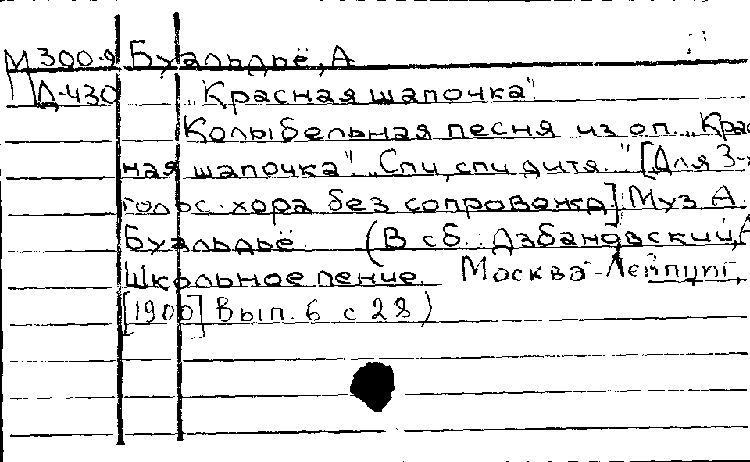 М 300-9 Буальдьё, А
Д-430 "Красная шапочка".
Колыбельная песня из оп. "Крас
ная шапочка". "Спи, спи дитя." [Для 3-х
голос. хора без сопровожд]. Муз А.
Буальдьё (В сб.: Дзбановский, А
Школьное пение. Москва-Лейпциг,
[1900] Вып. 6 с 28)